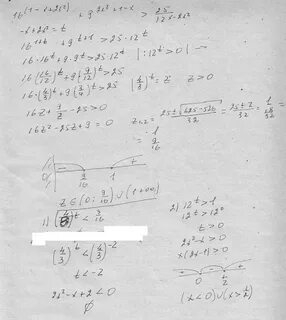 16^(1-x+2x²) + 9^(2x²+1-x) > 25/12^(x-2x²)
-x+2x²=t
16^(1+t) + 9^(t+1) > 25·12^t
16·16^t + 9·9^t > 25·12^t | :12^t > 0 |
16(16/12)^t + 9(9/12)^t > 25
16·(4/3)^t + 9(3/4)^t > 25 (4/3)^t = z z>0
16z + 9/z - 25 > 0
16z² - 25z + 9 = 0 z₁,₂ = (25±√(625-576))/32 = (25±7)/32 =
1
9/16
+ - +
0 9/16 1
z∈(0; 9/16)∪(1+∞)
1) (4/3)^t < 9/16
(4/3)^t < (4/3)^-2
t < -2
2x²-x+2 < 0
∅
2) 12^t > 1
12^t > 12^0
t > 0
2x²-x > 0
x(2x-1) > 0
+ - +
0 1/2
(x<0)∪(x>1/2)